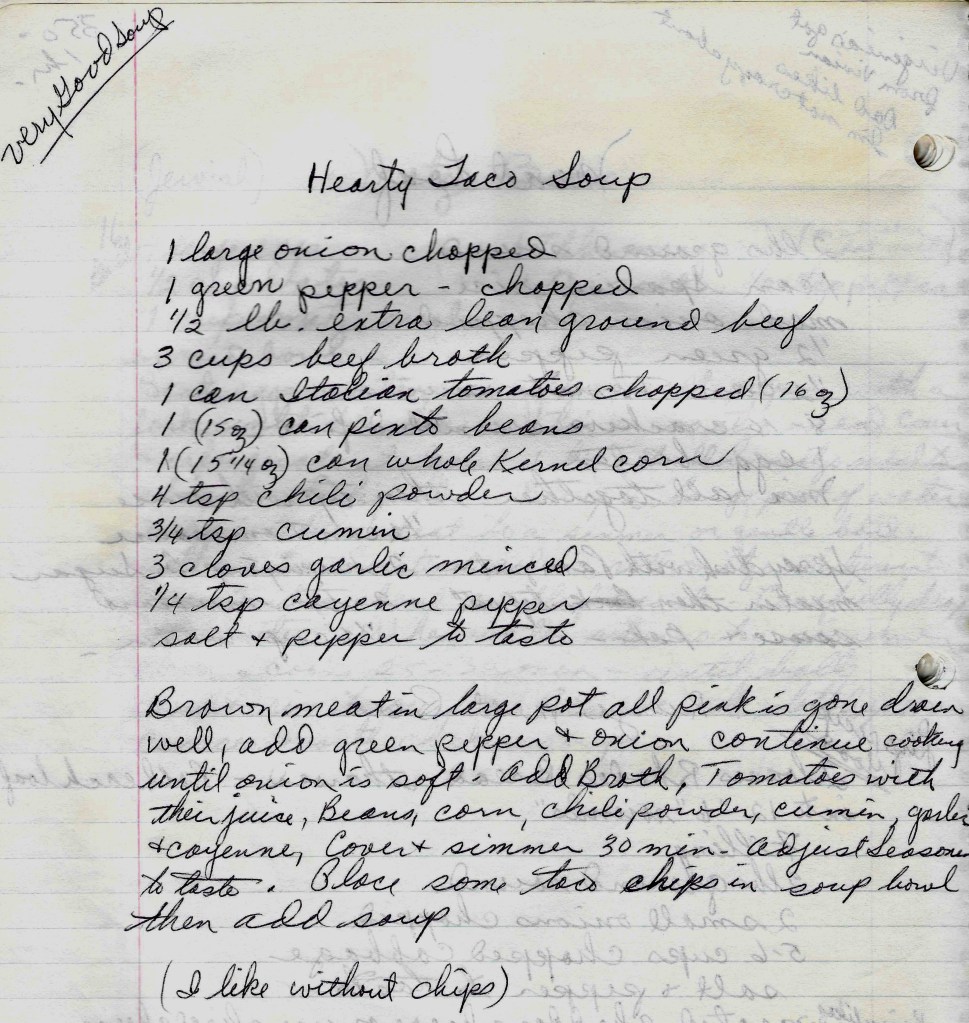 very Good Soup
Hearty Taco Soup
1 large onion chopped
1 green pepper - chopped
1/2 lb. extra lean ground beef
3 cups beef broth
1 can Italian tomatoes chopped (16 oz)
1 (15 oz) can pinto beans
1 (15 1/4 oz) can whole Kernel corn
4 tsp chili powder
3/4 tsp cumin
3 cloves garlic minced
1/4 tsp cayenne pepper
salt + pepper to taste
Brown meat in large pot all pink is gone drain
well, add green pepper + onion continue cooking
until onion is soft. Add Broth, Tomatoes with
their juice, Beans, corn, chili powder, cumin, garlic
+ cayenne, Cover + simmer 30 min. Adjust Season
to taste. Place some taco chips in soup bowl
then add soup
(I like without chips)